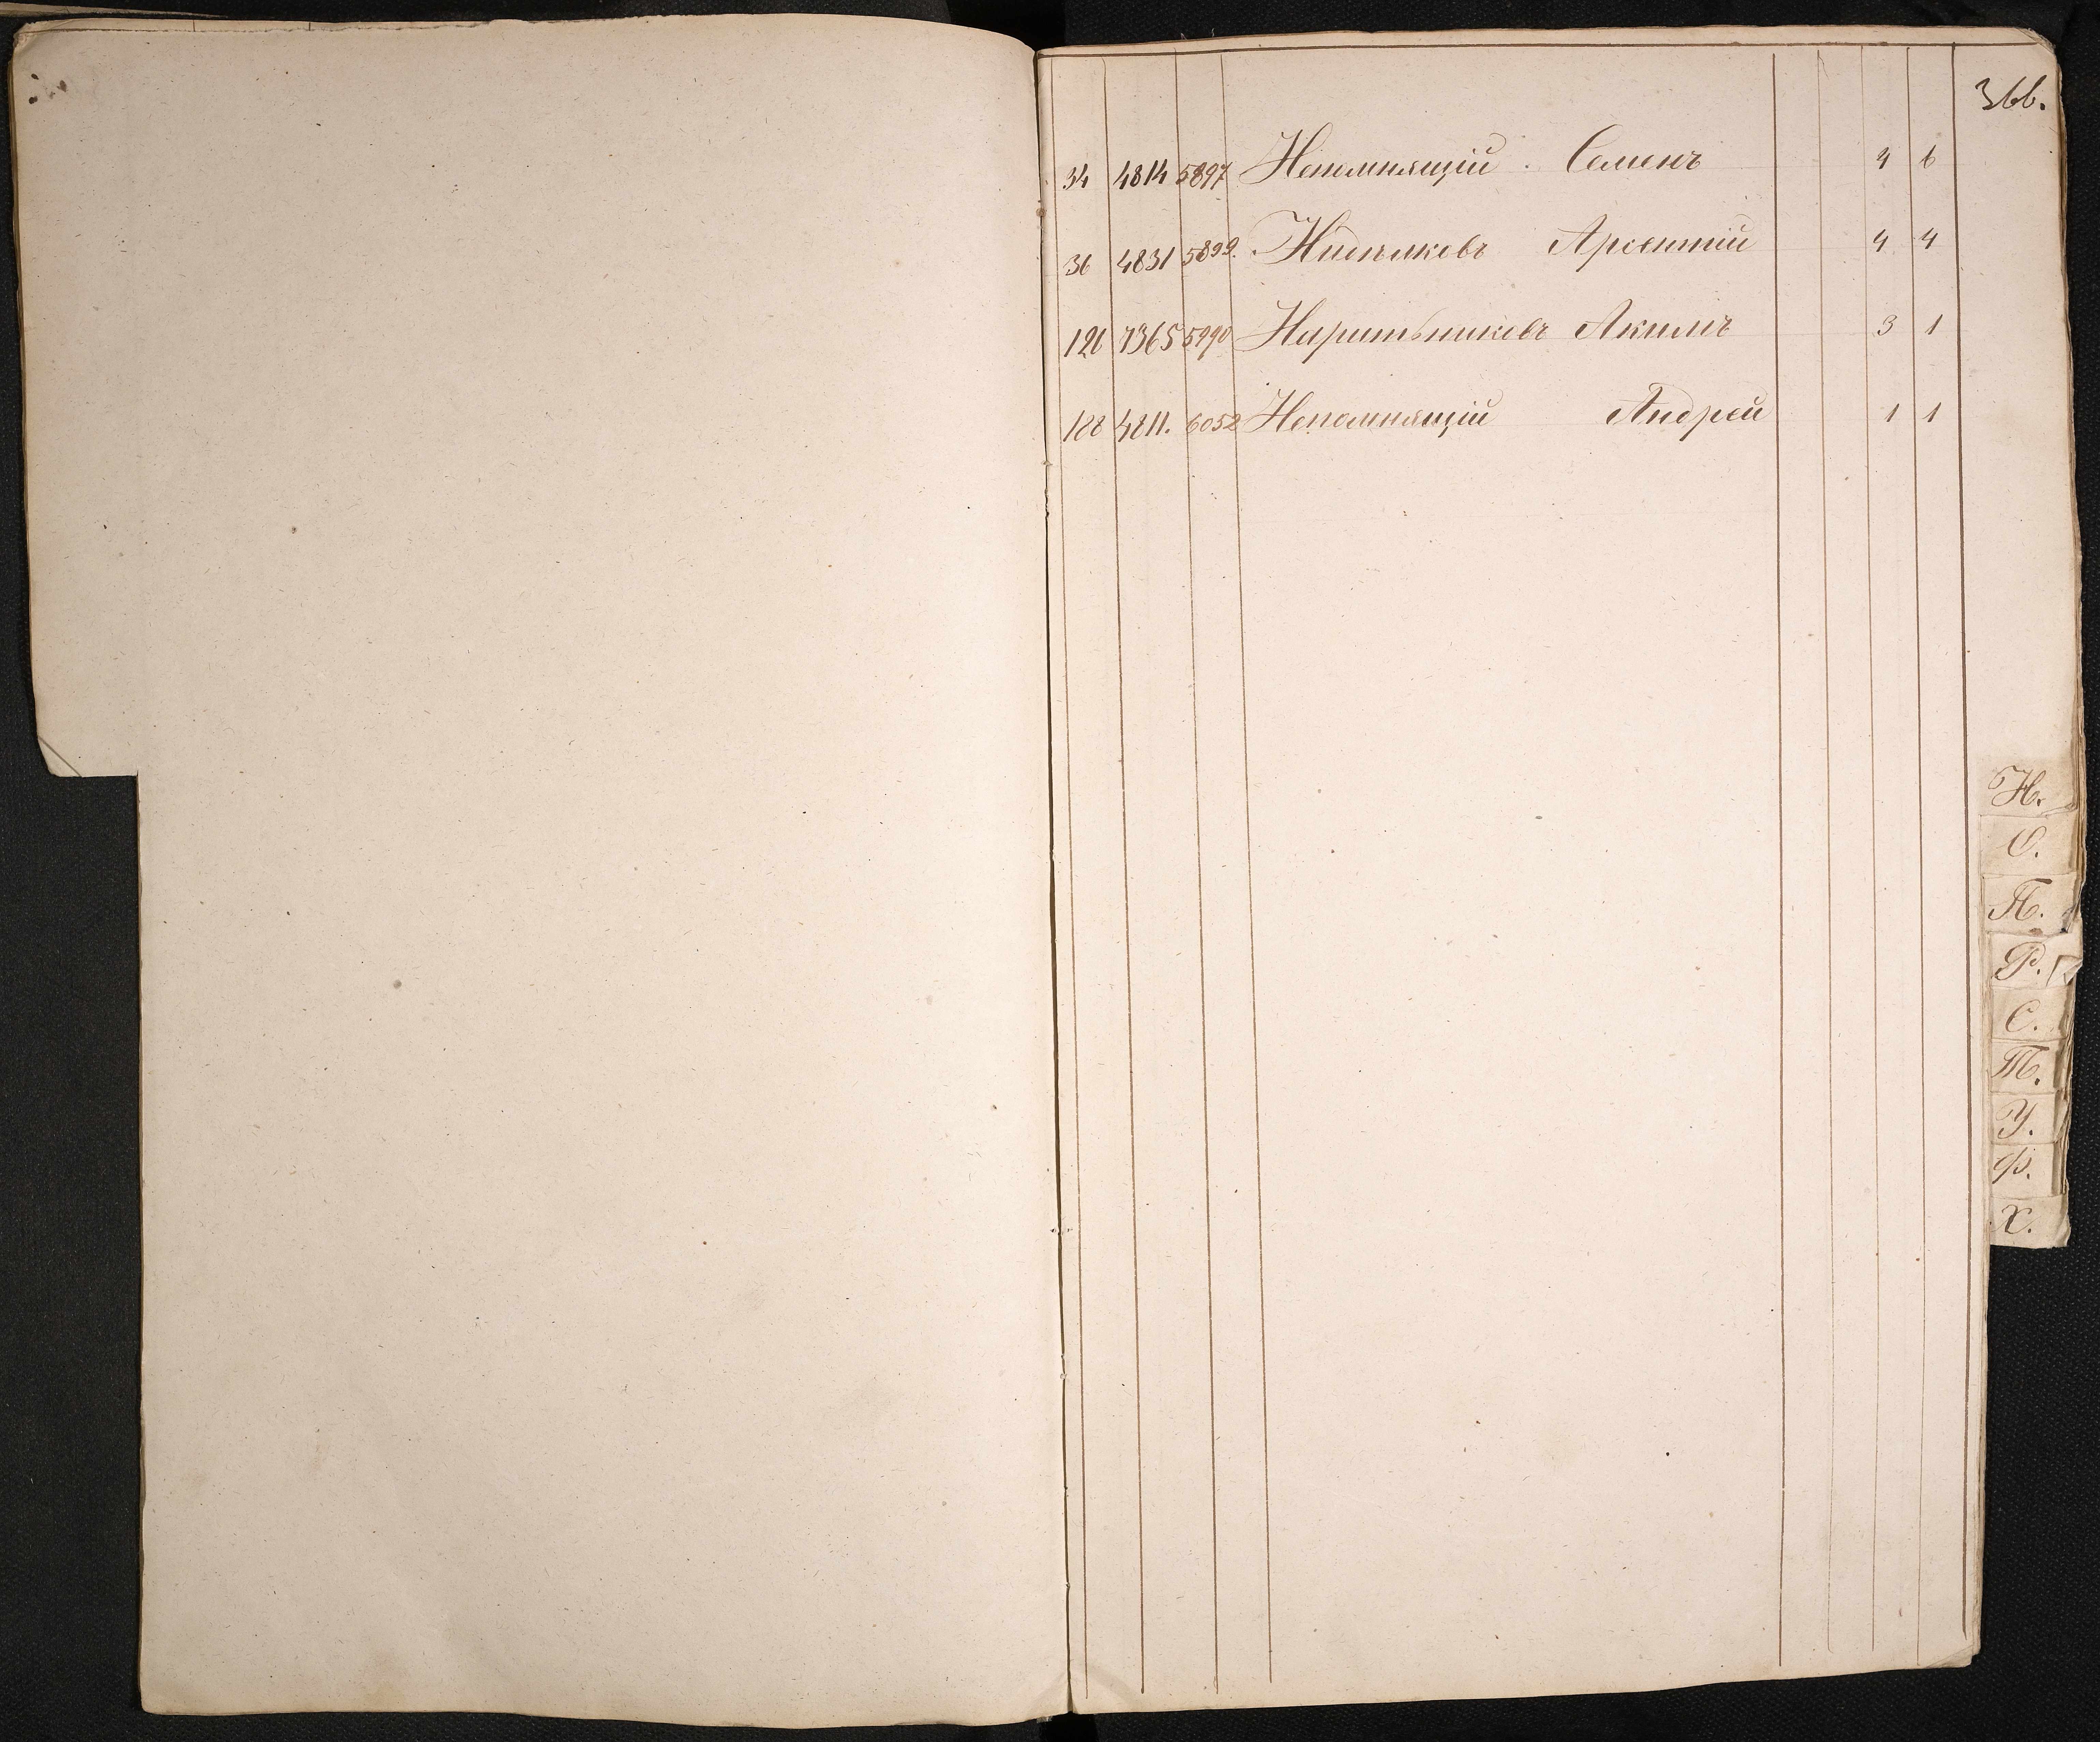 366.
34 4814 5897 Непомнящій Семенъ 4 6
36 4831 5899. Арсентій 4 4
126 7365 5990 Акимъ 3 1
188 4811. 6052 Непомнящій Андрей 1 1
Н.
О.
П.
Р.
С.
Т.
У.
Ф.
Х.